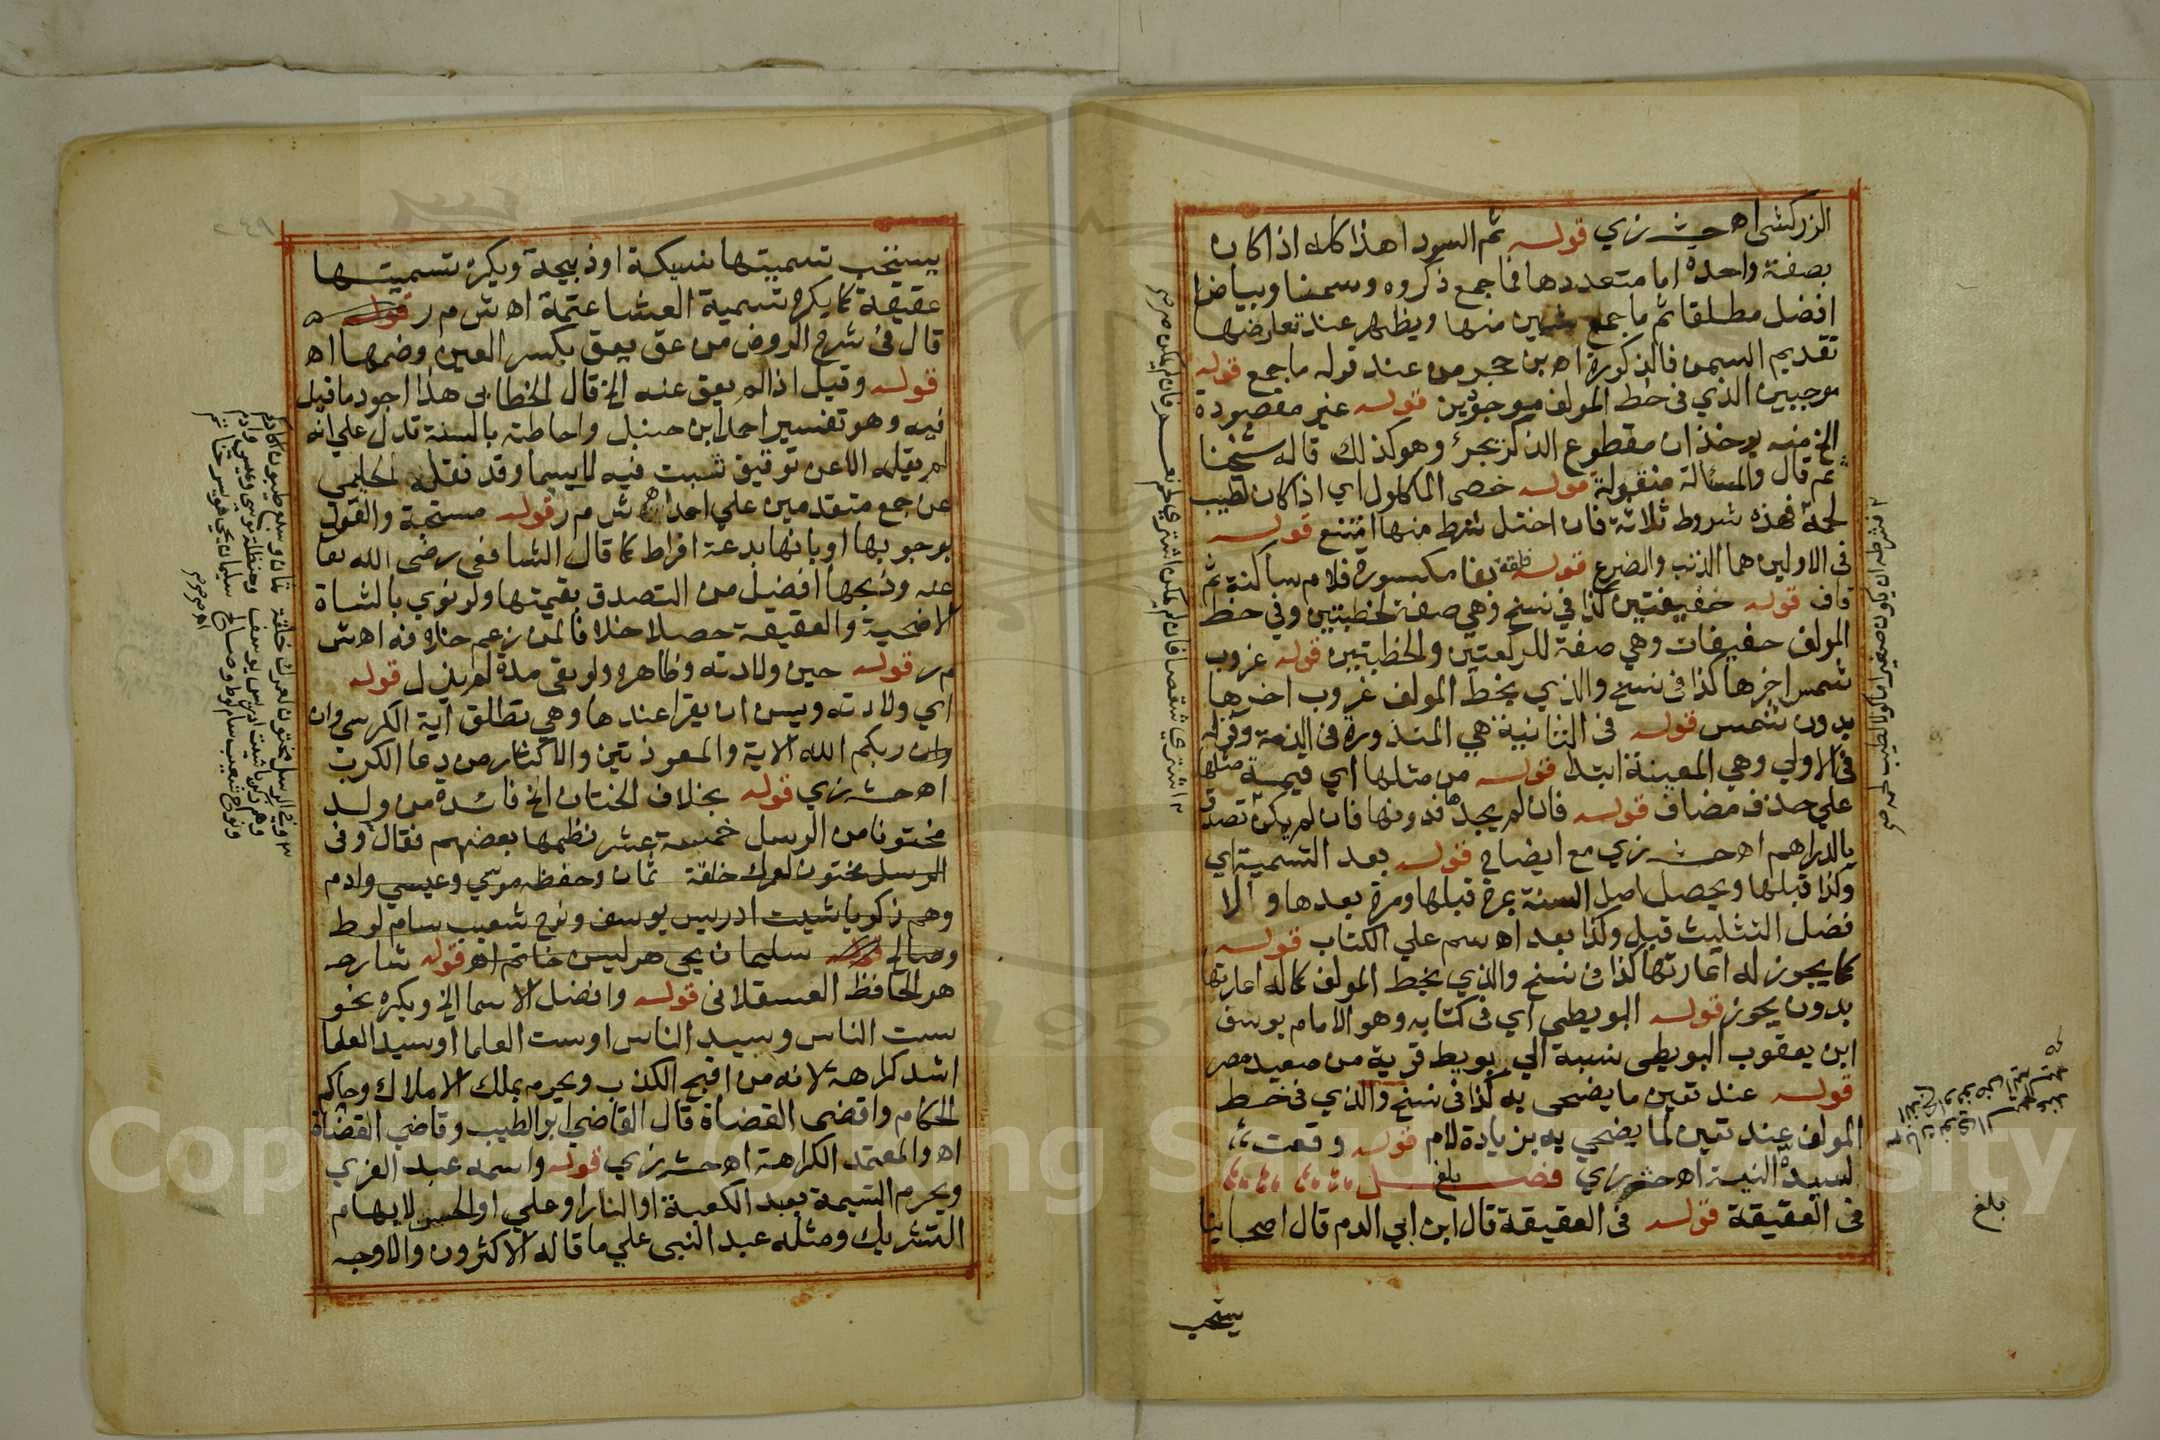 الزركشي اه حـ ش زي قوله ثم السود اهذا كله اذا كان
بصفة واحدة اما متعددها فما جمع ذكره وسمنا وبياضا
افضل مطلقا ثم ما جمع منها ويظهر عند تعارضها
تقديم السمن فالذكورة اه بن حجر من عند قوله ما جمع قوله
موجبين الذي في خط المولف موجودين قوله غير مقصودة
الخ منه يوخذ ان مقطوع الذكر يجزئ وهو كذلك قاله شيخنا
ثم قال والمسالة منقولة قوله خصى الماكول اي اذا كان لطيب
لحمه فهذه شروط ثلاثة فان اختل شرط منها امتنع قوله
في الاولين هما الذنب والضرع قوله فلقة بفا مكسورة فلام ساكنة ثم
قاف قوله خفيفتين كذا في نسخ فهي صفة لخطبتين وفي خط
المولف خفيفات وهي صفة للركعتين والخطبتين قوله غروب
شمس اخرها كذا في نسخ والذي بخط المولف غروب اخرها
بدون شمس قوله في الثانية هي المنذورة في الذمة وقوله
في الاولى وهي المعينة ابتدا قوله من مثلها اي قيمة مثلها
علي حذف مضاف قوله فان لم يجدها فدونها فان لم يكن تصدق
بالدراهم اه حـ ش زي مع ايضا في قوله بعد التسمية اي
وكذا قبلها ويحصل اصل السنة بمرة قبلها ومرة بعدها والا
فضل التثليث قبل وكذا بعد اه سم علي الكتاب قوله
كما يجوز له اعارتها كذا في نسخ والذي بخط المولف كما له اعارتها
بدون يجوز قوله البويطي اي في كتابه وهو الامام يوسف
ابن يعقوب البويطي نسبة الي بويط قرية من صعيد مصر
قوله عند تعين ما يضحى به كذا في نسخ والذي في خط
المولف عند تعين لما يضحي به بزيادة لام قوله وقعت
لسيده النية اه حـ ش زي فصل بلغ
في العقيقة قوله في العقيقة قال ابن ابي الدم قال اصحابنا
يستحب
بلغ
يستحب تسميتها نسيكة او ذبيحة ويكره تسميتها
عقيقة كما يكره تسمية العشا عتمة اه ش م ر قوله
قال في شرح الروض من عق يعق بكسر العين وضمها اه
قوله وقيل اذا لم يعق عنه الخ قال الخطابي هذا اجود ما قيل
فيه وهو تفسير احمد ابن حنبل واحاطته بالسنة تدل علي انه
لم يقله الا عن توقيف ثبت فيه لا سيما وقد نقله الحليمي
عن جمع متقدمين علي احمد اه ش م ر قوله مستحبة والقول
بوجوبها او بانها بدعة افراط كما قال الشافعي رضى الله تعا
عنه وذبحها افضل من التصدق بقيمتها ولو نوي بالشاة
الاضحية والعقيقة حصلا خلافا لمن زعم خلافه اه ش
م ر قوله حين ولادته وظاهره ولو بقى مدة لم ينزل قوله
اي ولادته ويسن ان يقرا عندها وهي تطلق اية الكرسي وان
وان ربكم الله الاية والمعوذتين والاكثار من دعا الكرب
اه حـ ش زي قوله بخلاف الختان الخ فائدة من ولد
مختونا من الرسل خمسة عشر نظمها بعضهم فقال وفي
الرسل مختون لعمرك خلقة ثمان وحفظه موسي وعيسي وادم
وهم زكريا شيث ادريس يوسف ونوح شعيب سام لوط
وصالح سليمان يحي هو ليس خاتم اه قوله شارحه
هو الحافظ العسقلاني قوله وافضل الاسما الخ ويكره نحو
ست الناس وسيد الناس او ست العلما او سيد العلما
اشد كراهة لانه من اقبح الكذب ويحرم بملك الاملاك وحاكم
الحكام واقضى القضاة قال القاضي ابو الطيب وقاضي القضاة
اه والمعتمد الكراهة اه حـ ش زي قوله واسمه عبد العزي
ويحرم التسمية بعبد الكعبة او النار او علي او الحسن لايهام
التشريك ومثله عبد النبي علي ما قاله الاكثرون والاوجه
وفي الرسل مختون لعمرك خلقة ثمان وتسع طيبون اكارم
وهم زكريا شيث ادريس يوسف وحنظلة موسي وعيسي وادم
ونوح شعيب سام لوط وصالح سليمان يحي هو يس خاتم
Copyright © King Saud University
1957